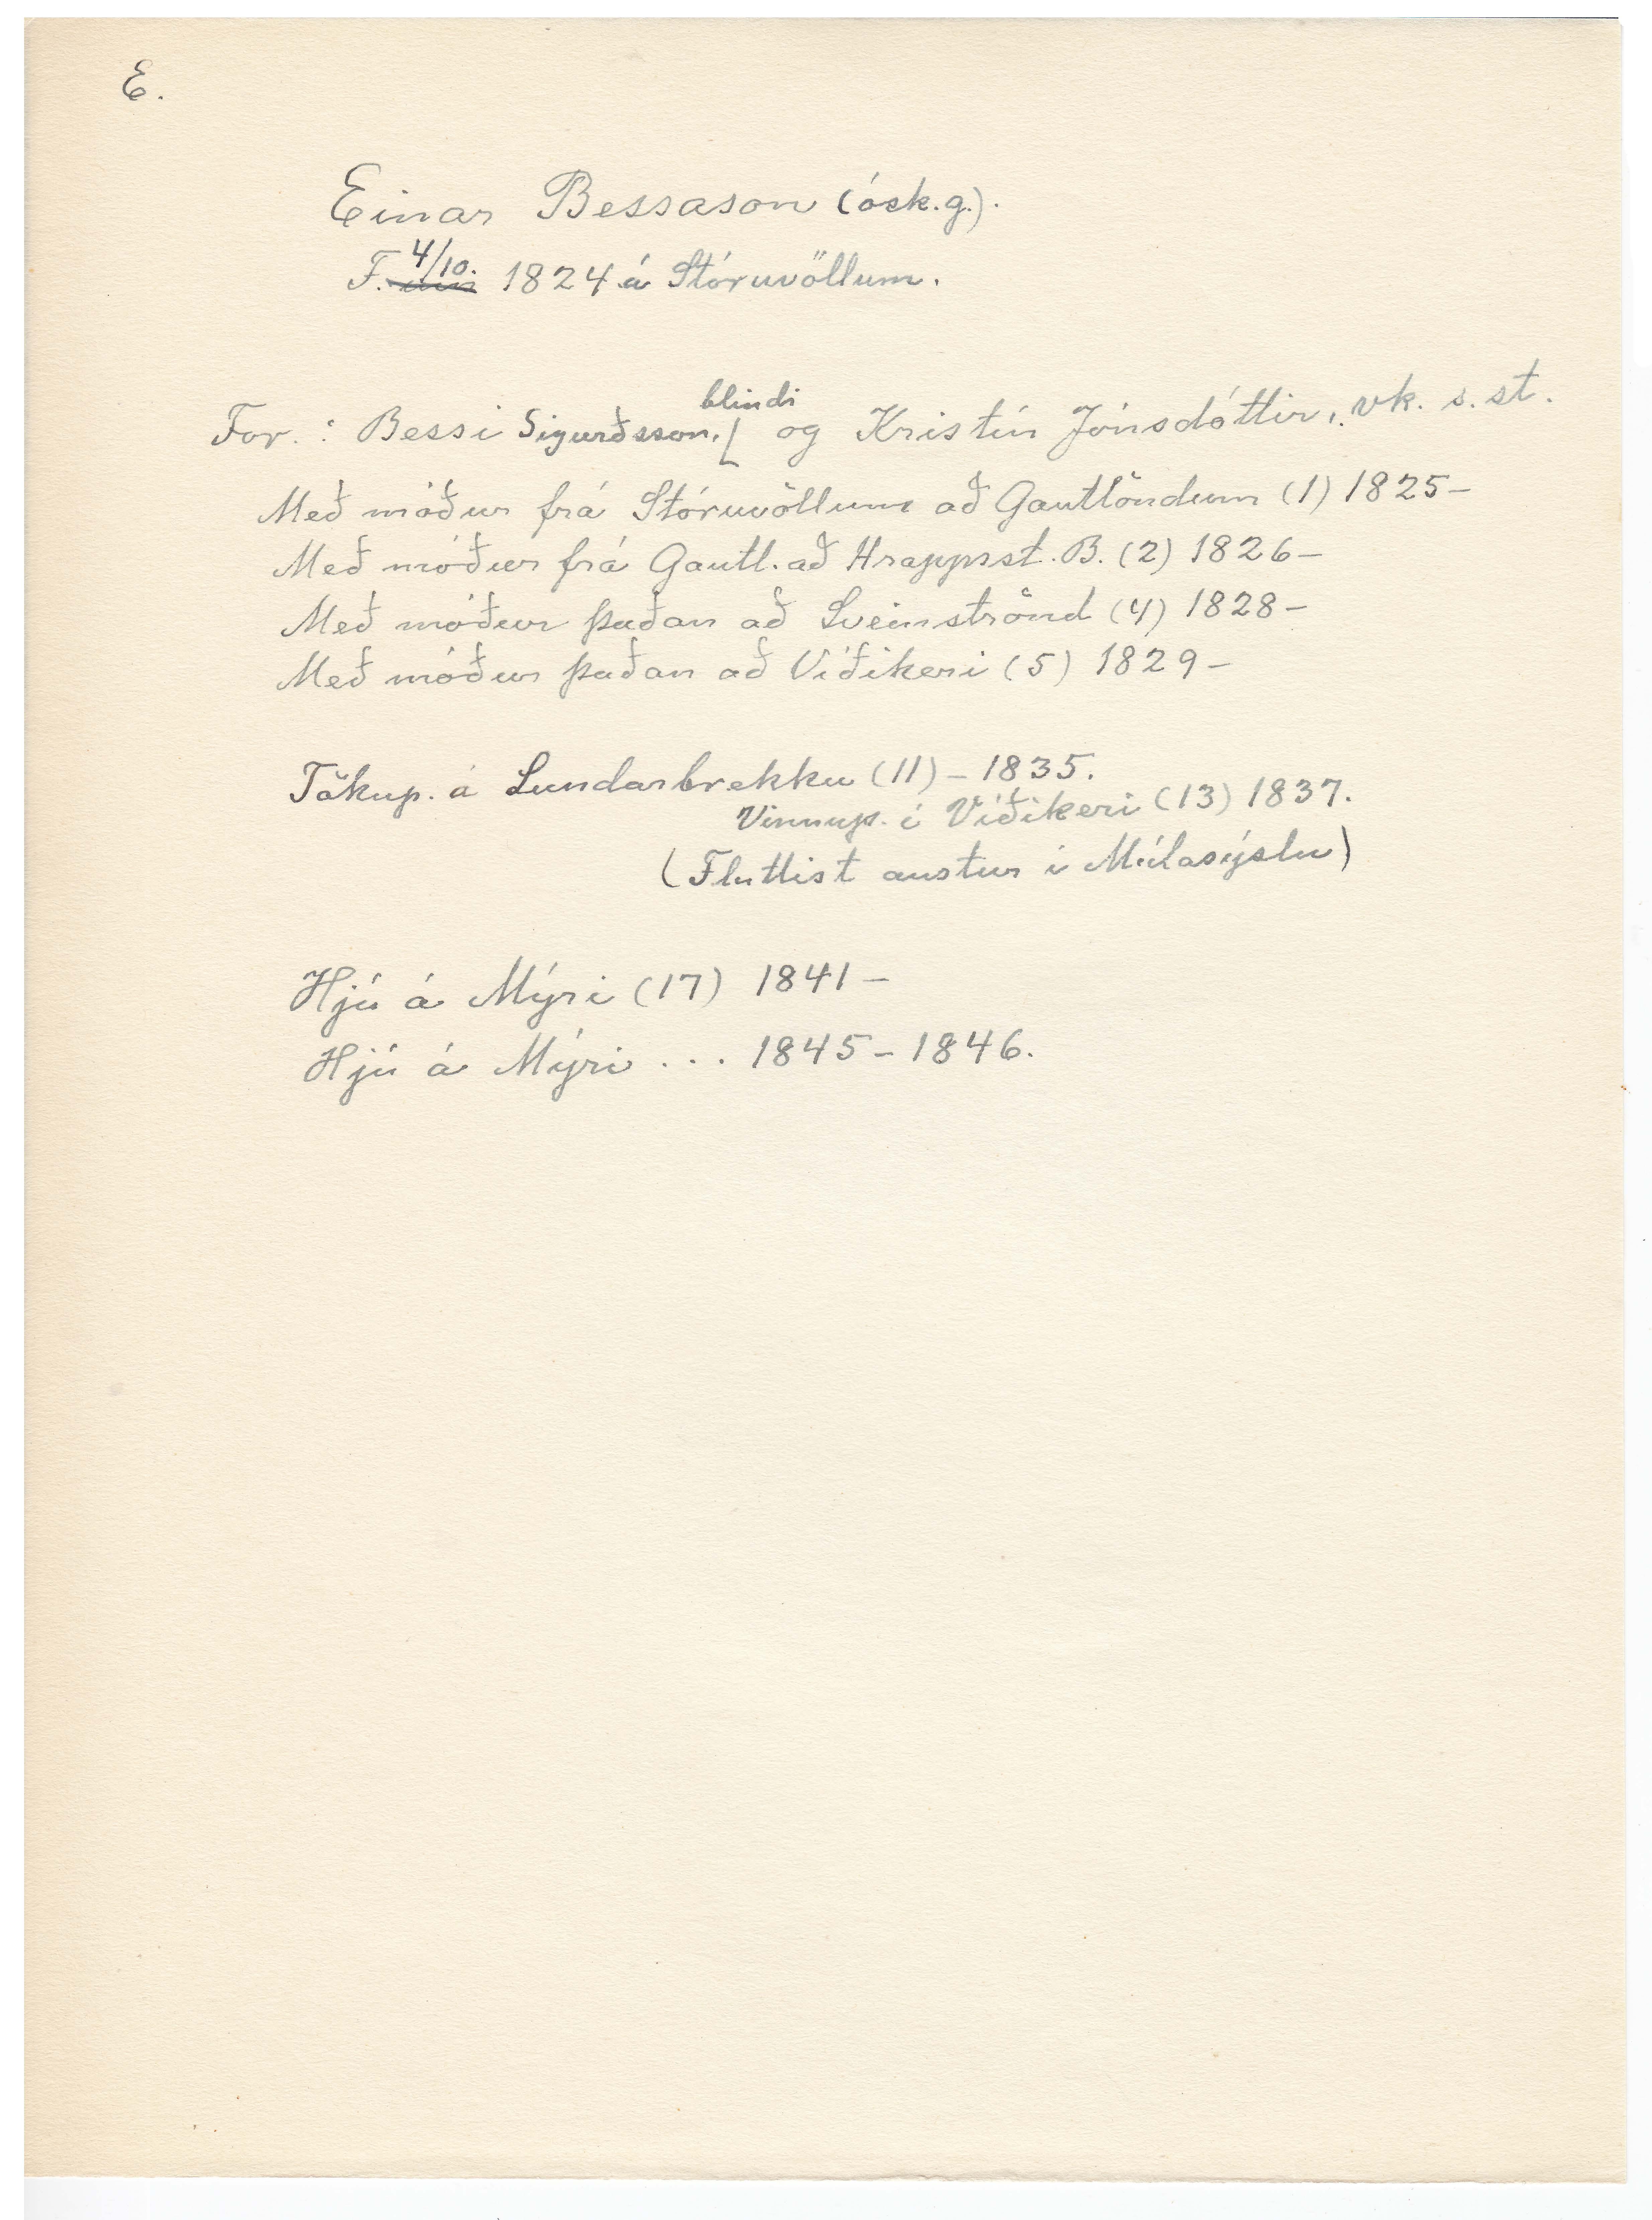 E.
Einar Bessason (ósk.g.).
F. 4/10. 1824 á Stóruvöllum.
For. : Bessi Sigurðsson, blindi og Kristín Jónsdóttir, vk. s. st.
Með móður frá Stóruvöllum að Gautlöndum (1) 1825-
Með móður frá Gautl. að Hrappsst. B. (2) 1826-
Með móður þaðan að Sveinströnd (4) 1828-
Með móður þaðan að Víðikeri (5) 1829-
Tökup. á Lundarbrekku (11) - 1835.
Vinnup. í Víðikeri (13) 1837.
(Fluttist austur í Múlasýslu)
Hjú á Mýri (17) 1841-
Hjú á Mýri ... 1845-1846.